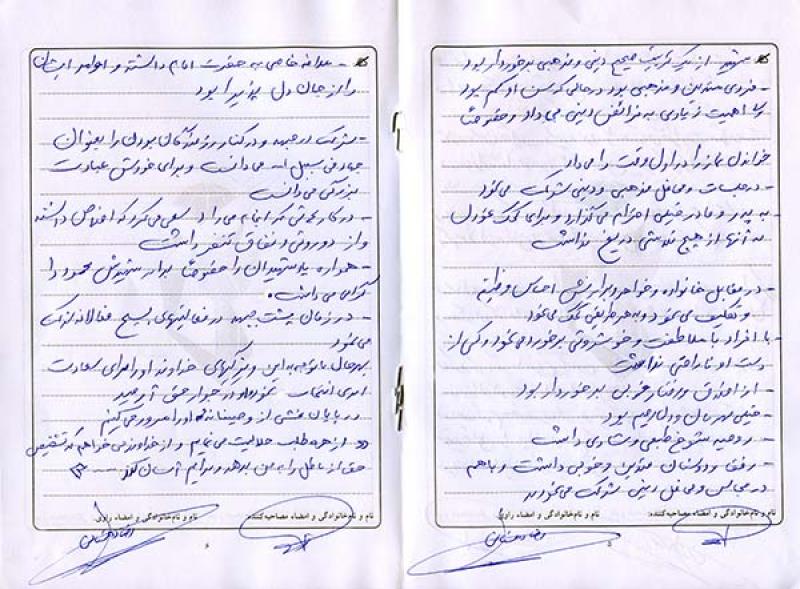 شهید از یک تربیت صحیح دینی و مذهبی برخوردار بود
- فردی متدین و مذهبی بود در حالی که سن او کم بود
اهمیت زیادی به فرائض دینی می‌داد و خصوصاً
خواندن نماز را در اول وقت را می‌داد
- در جلسات و محافل مذهبی و دینی شرکت می‌نمود
- به پدر و مادر خیلی احترام می‌گذارد و برای کمک نمودن
به آنها از هیچ تلاشی دریغ نداشت
- در مقابل خانواده و خواهر و برادرش احساس وظیفه
و تکلیف می‌نمود و به هر طریقی کمک می‌نمود
- با افراد با ملاطفت و خوشروئی برخورد می‌نمود و کسی از
دست او ناراحتی نداشت
- از اخلاق و رفتار خوبی برخوردار بود
- خیلی مهربان و دلرحیم بود
- روحیه شوخ طبعی و شادی داشت
- رفقا و دوستان متدین و خوبی داشت و باهم
در مجالس و محافل دینی شرکت می‌کردند
نام و نام خانوادگی و امضاء مصاحبه کننده: نام و نام خانوادگی و امضاء راوی:
- علاقه خاصی به حضرت امام داشته و اوامر ایشان
را از جان دل پذیرا بود
- شرکت در جبهه و در کنار رزمندگان بودن را بعنوان
جهاد فی سبیل الله می‌دانست و برای خودش عبادت
بزرگی می‌دانست
- در کار هائی که انجام می‌داد سعی می‌کرد که اخلاص داشته
و از دوروئی و نفاق تنفر داشت
- همواره یاد شهیدان را خصوصاً برادر شهیدش محمود را
گرامی می‌داشت.
- در زمان پشت جبهه در فعالیتهای بسیج فعالانه شرکت
می‌نمود
بهرحال با توجه به این ویژگیهای خداوند او را برای سعادت
ابدی انتخاب نمود و در جوار حق آرمید
در پایان بخشی از وصیتنامه او را مرور می‌کنیم
« از همه طلب حلالیت می‌نمایم و از خداوند می‌خواهم که تشخیص
حق از باطل را به من بدهد و برایم آسان کند »
نام و نام خانوادگی و امضاء مصاحبه کننده: نام و نام خانوادگی و امضاء راوی: